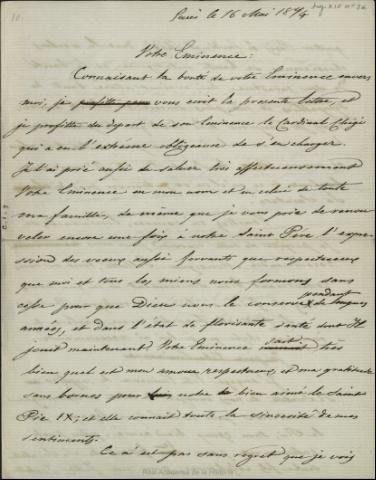 10.
Paris le 16 Mai 1874
Votre Eminence:
Connaisant la bonté de votre Eminence envers
moi, je profite pour vous ecrit la presente lettre, et
je profitte du depart de son Eminence le Cardinal Chigi
qui a eu l'extrême obligeance de s'en charger.
Je l'ai prié aussi de saluer tres affectueusement
Votre Eminence en mon nom et en celui de toute
ma famille, de même que je vous prie de renou
veler encore une fois à notre Saint Père l'expre
ssion des voeux aussi fervants que respectueux
que moi et tous les miens nous formons sans
cesse pour que Dieu nous le conserve pendant de longues
années, et dans l'état de florisante santé dont Il
jouit maintenant. Votre Eminence sait tres
bien quel est mon amour respectueux et ma gratitude
sans bornes pour notre bien aimé le Saint
Pie IX; et elle connait toute la sincerité de mes
sentiments.
Ce n'est pas sans regret que je vois
Real Academia de la Historia